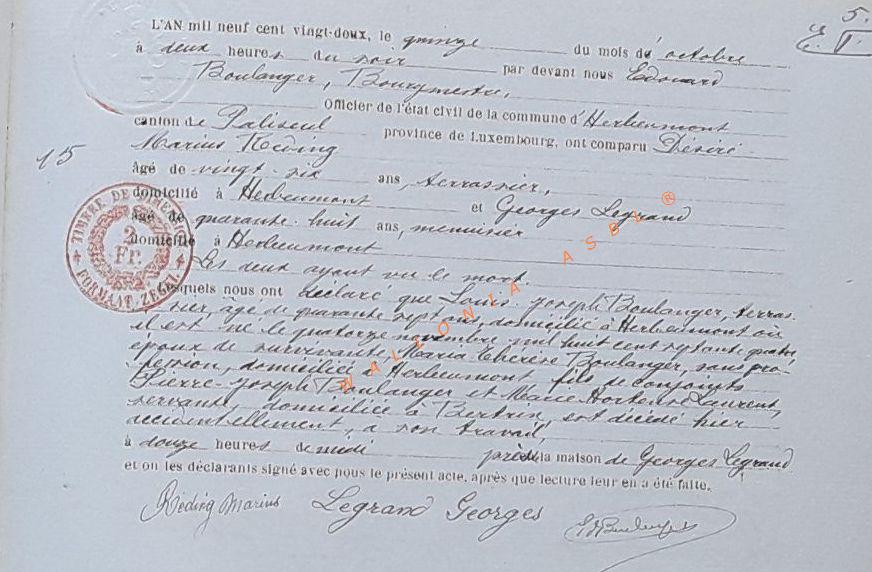 5.
L'AN mil neuf cent vingt-deux, le quinze du mois d'octobre
à deux heures du soir par devant nous Edouard
Boulanger, Bourgmestre,
Officier de l'état civil de la commune d'Herbeumont
canton de Paliseul province de Luxembourg, ont comparu Désiré
Marius Reding
15
âgé de vingt-six ans, terrassier,
domicilié à Herbeumont et Georges Legrand
âgé de quarante-huit ans, menuisier
domicilié à Herbeumont
Les deux ayant vu le mort.
Lesquels nous ont déclaré que Louis-Joseph Boulanger, terras-
sier, âgé de quarante sept ans, domicilié à Herbeumont où
il est né le quatorze novembre mil huit cent septante quatre
époux de survivante, Maria Thérèse Boulanger, sans pro-
fession, domiciliée à Herbeumont fils de conjoints
Pierre-Joseph Boulanger et Marie Hortense Laurent,
servante, domiciliée à Bertrix, est décédé hier
accidentellement, à son travail,
à douze heures de midi près de la maison de Georges Legrand
et ont les déclarants signé avec nous le présent acte, après que lecture leur en a été faite.
Réding Marius Legrand Georges EdBoulanger
TIMBRE DE DIMENSION
2
Fr.
FORMAAT ZEGEL
WALLONIA ASBL ®